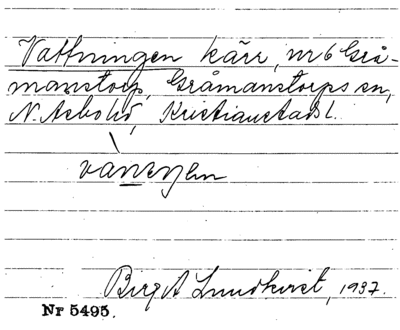 Vattningen kärr, nr 6 Grå-
manstorp, Gråmanstorps sn,
N. Åsbo hd, Kristianstads l.
Birg A Lundkvist, 1937.
Nr 5495.